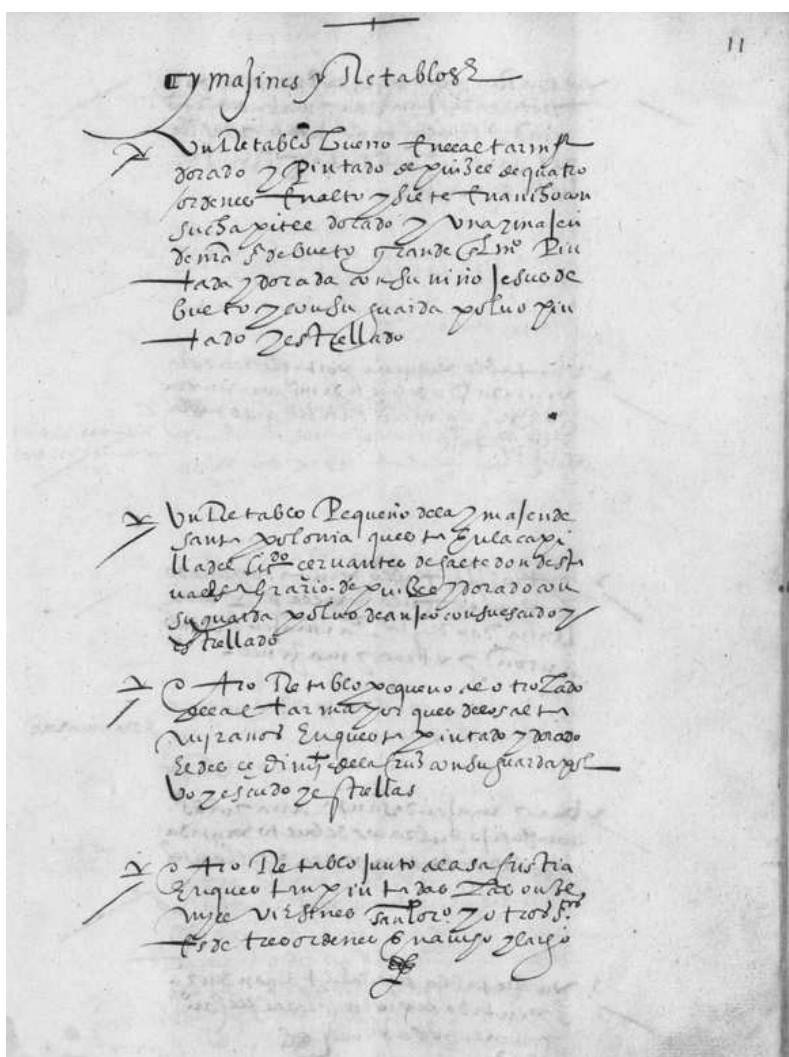 11
Ymajines y Retablos
Un Retablo bueno En el altar mºr
dorado y Pintado de pinzel de quatro
ordenes En alto y siete En ancho con
su chapitel dorado y una ymajen
de nra sª de bulto grande Pin
tada y dorada con su niño Jesus de
bulto y con su guarda polvo pin
tado y estrellado
Un Retablo Pequeño de la ymajen de
santa polonia questa En la capi
lla del licdo cervantes de gaete donde sta
de pinzel y dorado con
su guarda polvo de anjeo con su escudo y
estrellado
otro Retablo pequeno al otro Lado
del altar mayor ques de los alta
miranos En questa pintado y dorado
El de la Cruz con su guarda pol
vo y escudo y estrellas
otro Retablo Junto a la sacristia
En questan pintadas Las onze
myll virgines san loro y otros stos
Es de tres ordenes En ancho y largo